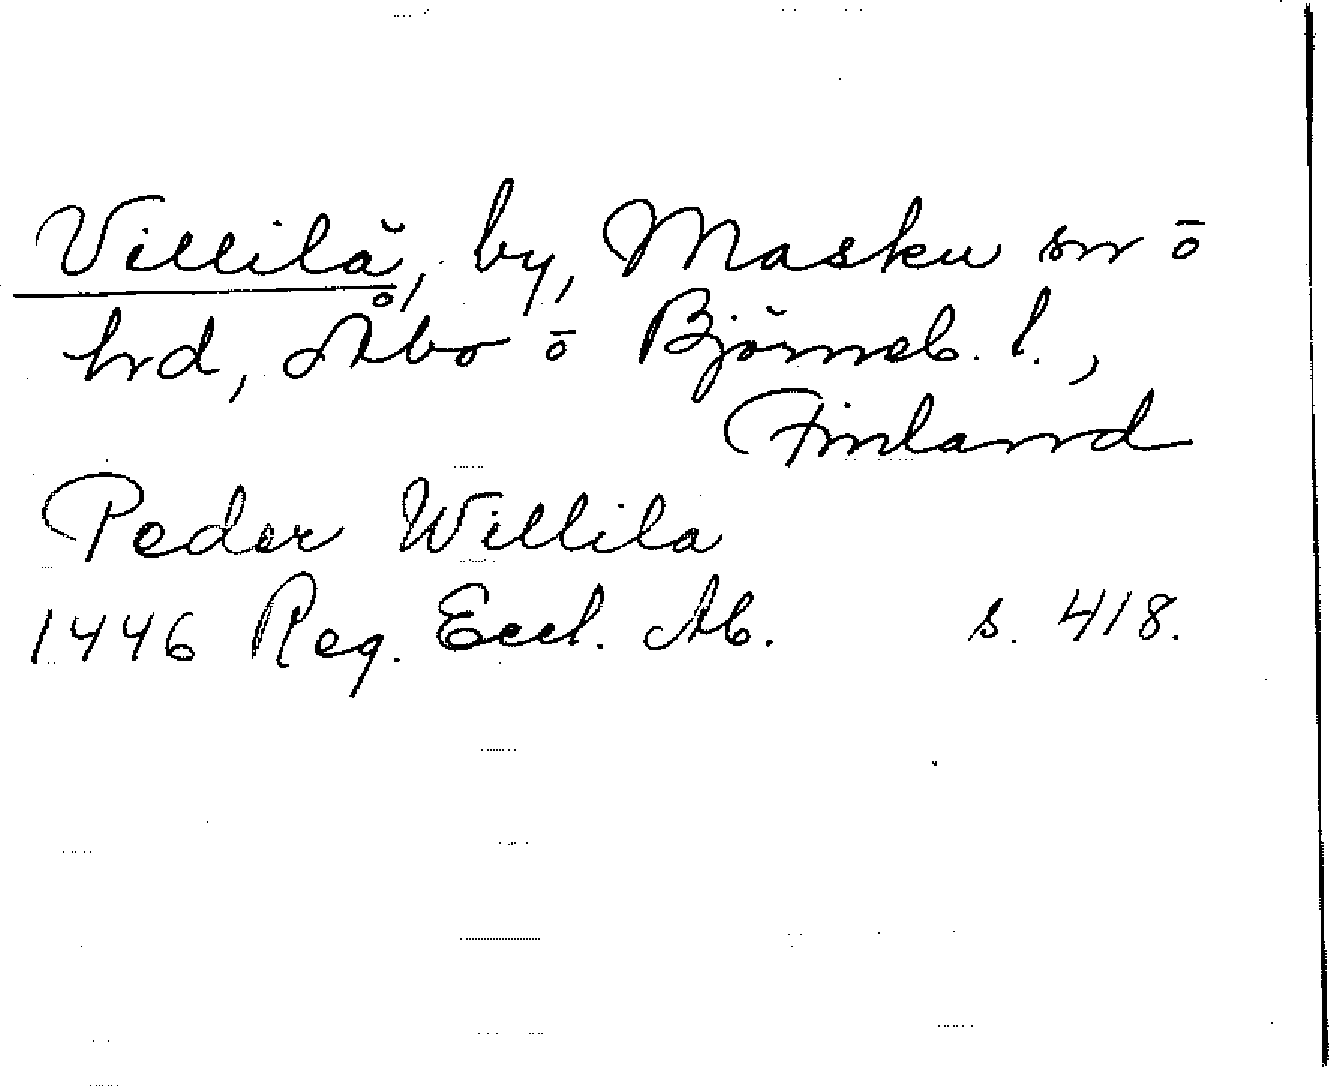 Villilä, by, Masku sn ō
hrd, Åbo ō Björneb. l.,
Finland
Peder Willila
1446 Reg. Eccl. Ab. s. 418.